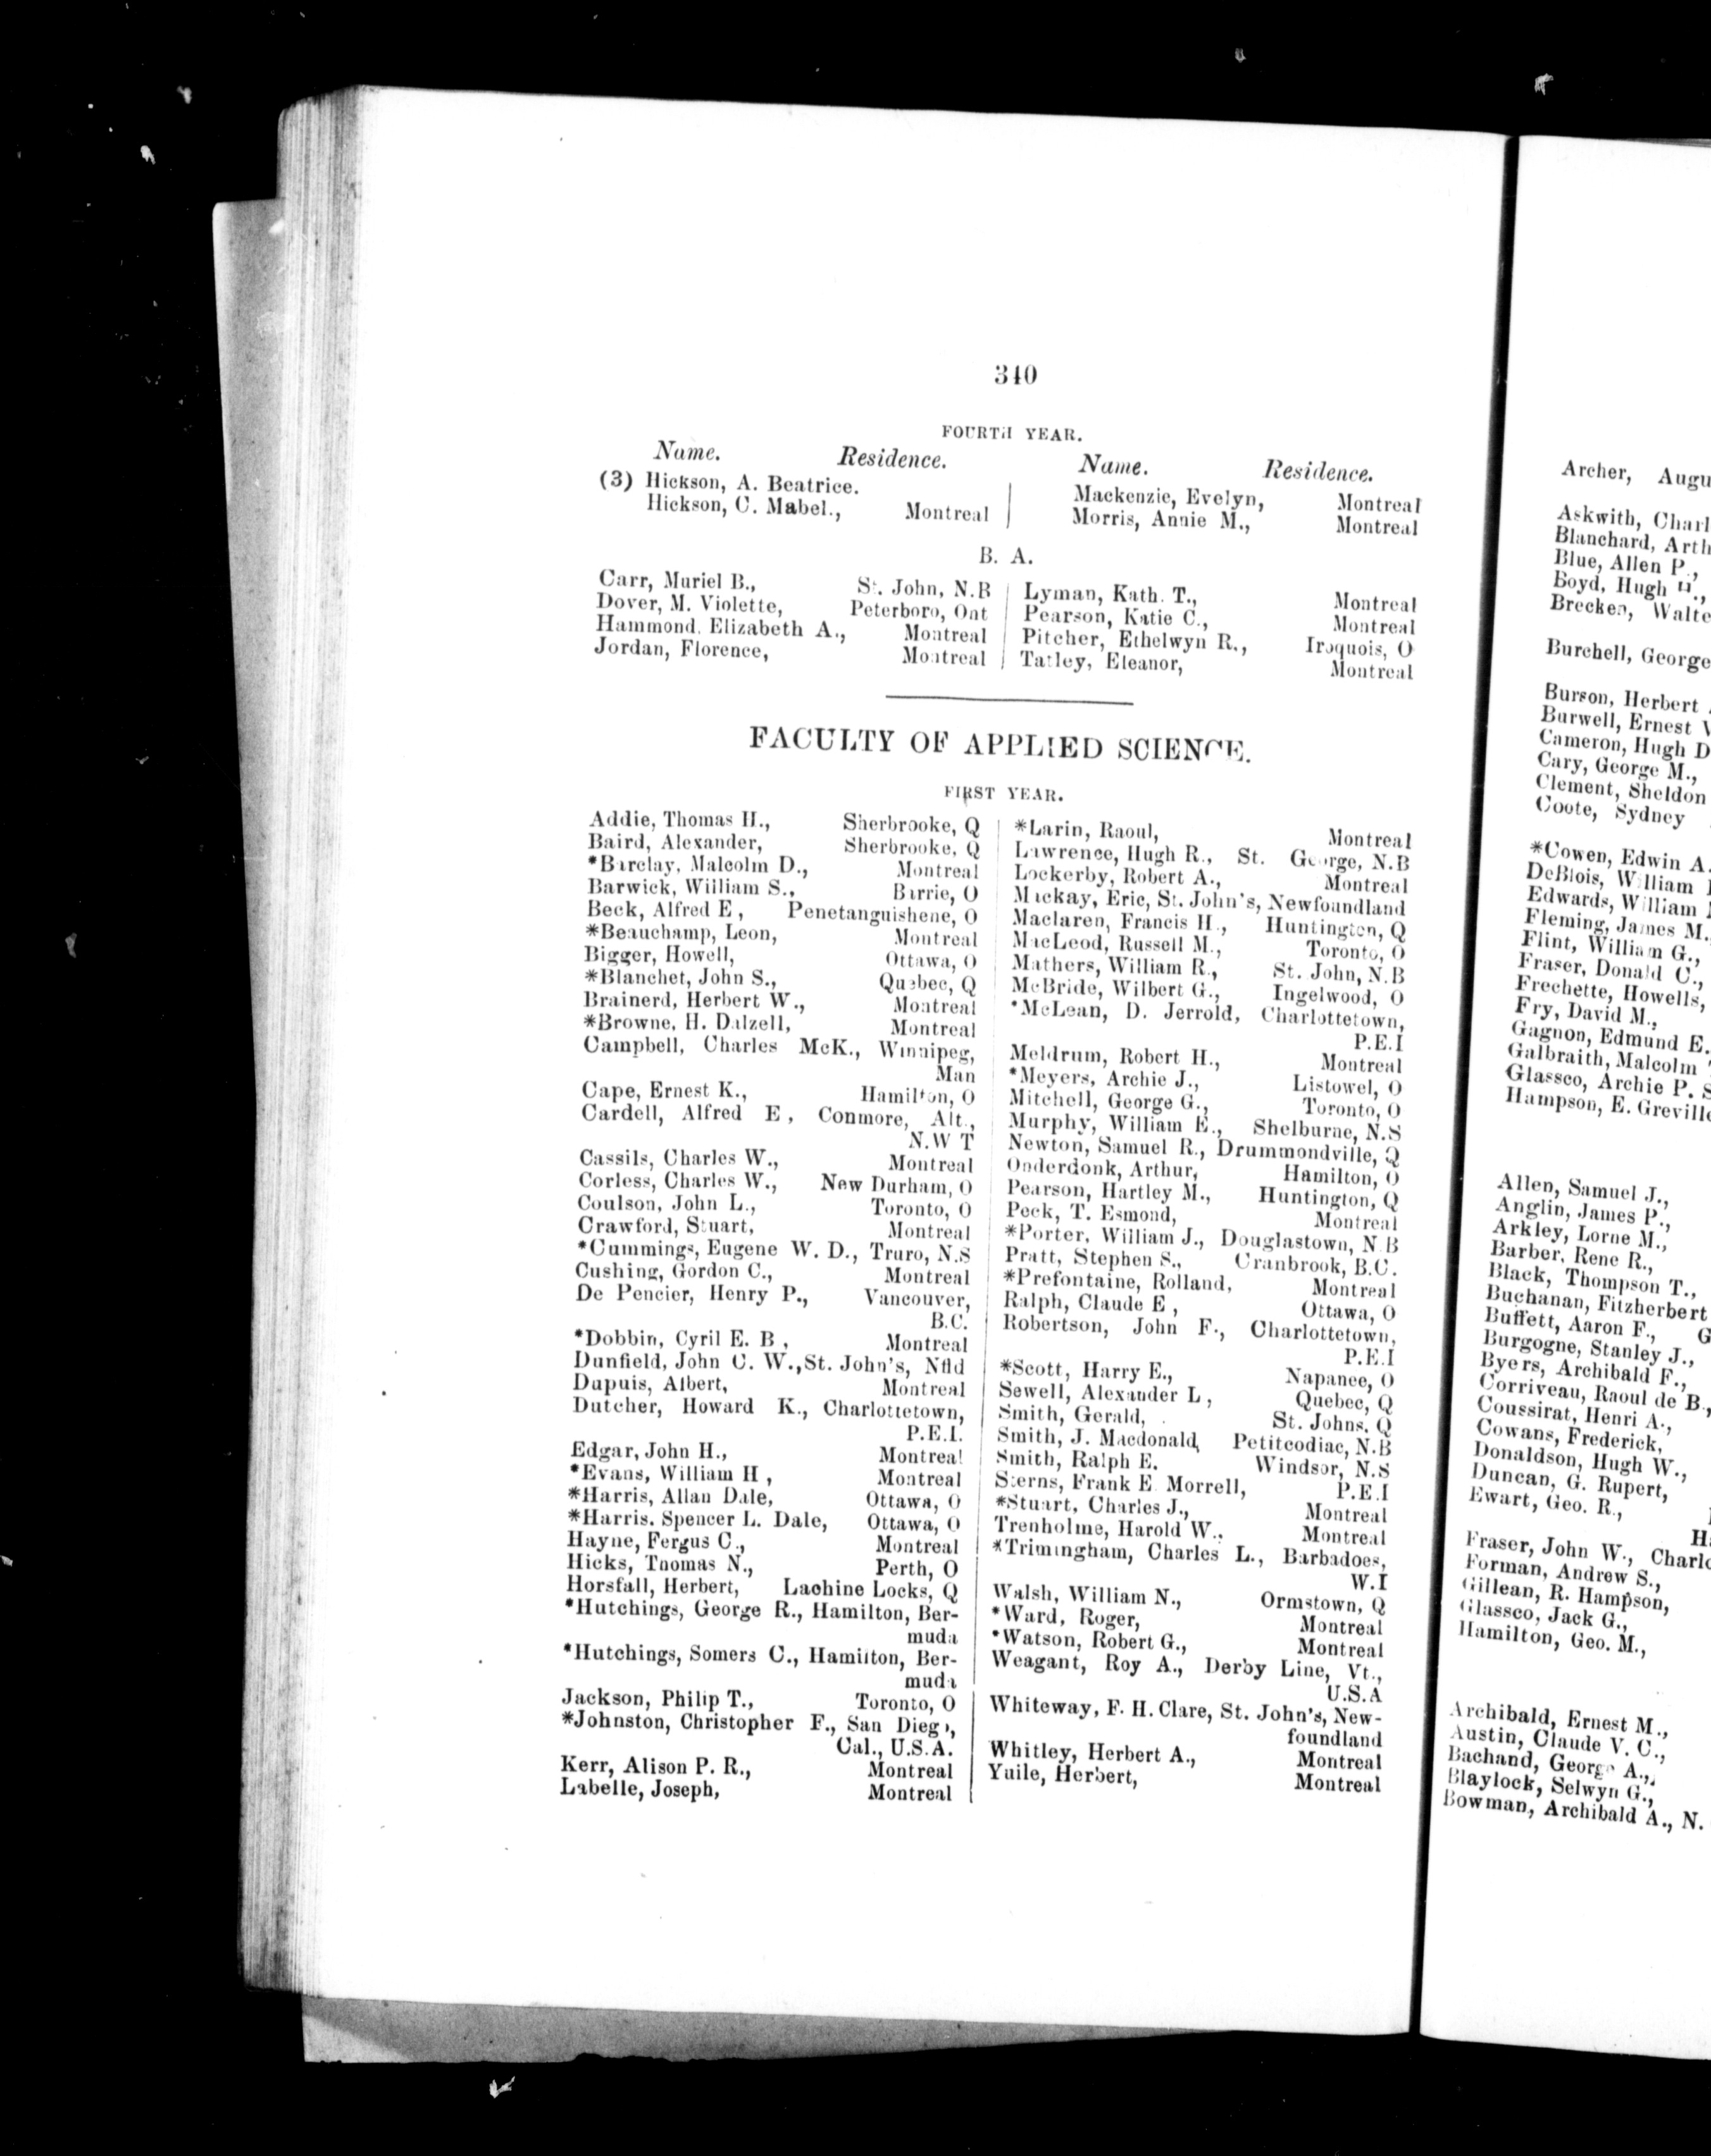 340
FOURTH YEAR.
Name. Residence. Name. Residence.
(3) Hickson, A. Beatrice.
Hickson, C. Mabel., Montreal
Mackenzie, Evelyn, Montreal
Morris, Annie M., Montreal
B. A.
Carr, Muriel B., St. John, N.B
Dover, M. Violette, Peterboro, Ont
Hammond, Elizabeth A., Montreal
Jordan, Florence, Montreal
Lyman, Kath. T., Montreal
Pearson, Katie C., Montreal
Pitcher, Ethelwyn R., Iroquois, O
Tatley, Eleanor, Montreal
FACULTY OF APPLIED SCIENCE.
FIRST YEAR.
Addie, Thomas H., Sherbrooke, Q
Baird, Alexander, Sherbrooke, Q
*Barclay, Malcolm D., Montreal
Barwick, William S., Barrie, O
Beck, Alfred E , Penetanguishene, O
*Beauchamp, Leon, Montreal
Bigger, Howell, Ottawa, O
*Blanchet, John S., Quebec, Q
Brainerd, Herbert W., Montreal
*Browne, H. Dalzell, Montreal
Campbell, Charles McK., Winnipeg,
Man
Cape, Ernest K., Hamilton, O
Cardell, Alfred E , Conmore, Alt.,
N.W T
Cassils, Charles W., Montreal
Corless, Charles W., New Durham, O
Coulson, John L., Toronto, O
Crawford, Stuart, Montreal
*Cummings, Eugene W. D., Truro, N.S
Cushing, Gordon C., Montreal
De Pencier, Henry P., Vancouver,
B.C.
*Dobbin, Cyril E. B , Montreal
Dunfield, John C. W.,St. John's, Nfld
Dupuis, Albert, Montreal
Dutcher, Howard K., Charlottetown,
P.E.I.
Edgar, John H., Montreal
*Evans, William H , Montreal
*Harris, Allan Dale, Ottawa, O
*Harris. Spencer L. Dale, Ottawa, O
Hayne, Fergus C., Montreal
Hicks, Thomas N., Perth, O
Horsfall, Herbert, Lachine Locks, Q
*Hutchings, George R., Hamilton, Ber-
muda
*Hutchings, Somers C., Hamilton, Ber-
muda
Jackson, Philip T., Toronto, O
*Johnston, Christopher F., San Diego,
Cal., U.S.A.
Kerr, Alison P. R., Montreal
Labelle, Joseph, Montreal
*Larin, Raoul, Montreal
Lawrence, Hugh R., St. George, N.B
Lockerby, Robert A., Montreal
Mackay, Eric, St. John's, Newfoundland
Maclaren, Francis H., Huntington, Q
MacLeod, Russell M., Toronto, O
Mathers, William R., St. John, N.B
McBride, Wilbert G., Ingelwood, O
*McLean, D. Jerrold, Charlottetown,
P.E.I
Meldrum, Robert H., Montreal
*Meyers, Archie J., Listowel, O
Mitchell, George G., Toronto, O
Murphy, William E., Shelburne, N.S
Newton, Samuel R., Drummondville, Q
Onderdonk, Arthur, Hamilton, O
Pearson, Hartley M., Huntington, Q
Peck, T. Esmond, Montreal
*Porter, William J., Douglastown, N B
Pratt, Stephen S., Cranbrook, B.C.
*Prefontaine, Rolland, Montreal
Ralph, Claude E , Ottawa, O
Robertson, John F., Charlottetown,
P.E.I
*Scott, Harry E., Napanee, O
Sewell, Alexander L , Quebec, Q
Smith, Gerald, St. Johns, Q
Smith, J. Macdonald, Petitcodiac, N.B
Smith, Ralph E. Windsor, N.S
Sterns, Frank E Morrell, P.E.I
*Stuart, Charles J., Montreal
Trenholme, Harold W., Montreal
*Trimingham, Charles L., Barbadoes,
W.I
Walsh, William N., Ormstown, Q
*Ward, Roger, Montreal
*Watson, Robert G., Montreal
Weagant, Roy A., Derby Line, Vt.,
U.S.A
Whiteway, F. H. Clare, St. John's, New-
foundland
Whitley, Herbert A., Montreal
Yuile, Herbert, Montreal
Archer, Augu
Askwith, Charl
Blanchard, Arth
Blue, Allen P.,
Boyd, Hugh H.,
Brecken, Walte
Burchell, George
Burson, Herbert
Burwell, Ernest
Cameron, Hugh D
Cary, George M.,
Clement, Sheldon
Coote, Sydney
*Cowen, Edwin A.
DeBlois, William
Edwards, William
Fleming, James M.
Flint, William G.,
Fraser, Donald C.,
Frechette, Howells,
Fry, David M.,
Gagnon, Edmund E.
Galbraith, Malcolm
Glassco, Archie P. S
Hampson, E. Greville
Allen, Samuel J.,
Anglin, James P.,
Arkley, Lorne M.,
Barber, Rene R.,
Black, Thompson T.,
Buchanan, Fitzherbert
Buffett, Aaron F., G
Burgogne, Stanley J.,
Byers, Archibald F.,
Corriveau, Raoul de B.,
Coussirat, Henri A.,
Cowans, Frederick,
Donaldson, Hugh W.,
Duncan, G. Rupert,
Ewart, Geo. R.,
H
Fraser, John W., Charlo
Forman, Andrew S.,
Gillean, R. Hampson,
Glassco, Jack G.,
Hamilton, Geo. M.,
Archibald, Ernest M.,
Austin, Claude V. C.,
Bachand, George A.,
Blaylock, Selwyn G.,
Bowman, Archibald A., N.